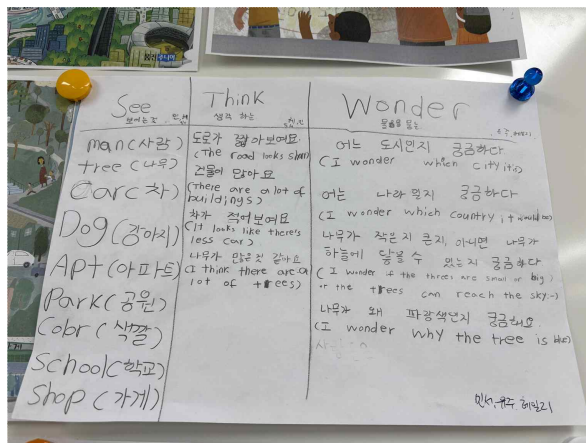 See
보이는 것
man(사람)
tree(나무)
Car(차)
Dog(강아지)
Apt(아파트)
Park(공원)
Color(색깔)
School(학교)
Shop(가게)
Think
생각 하는
도로가 짧아보여요
(The road looks short)
건물이 많아요
(There are a lot of
buildings)
차가 적어보여요
(It looks like there's
less car)
나무가 많은것 같아요
(I think there are a
lot of trees)
Wonder
어느 도시인지 궁금하다
(I wonder which city it is)
어느 나라 일지 궁금하다
(I wonder which country it would be)
나무가 작은지 큰지, 아니면 나무가
하늘에 닿을 수 있는지 궁금하다
(I wonder if the threes are small or big,
or the trees can reach the sky.)
나무가 왜 파랑색인지 궁금해요.
(I wonder why the tree is blue)
민서, 유주, 헤일리